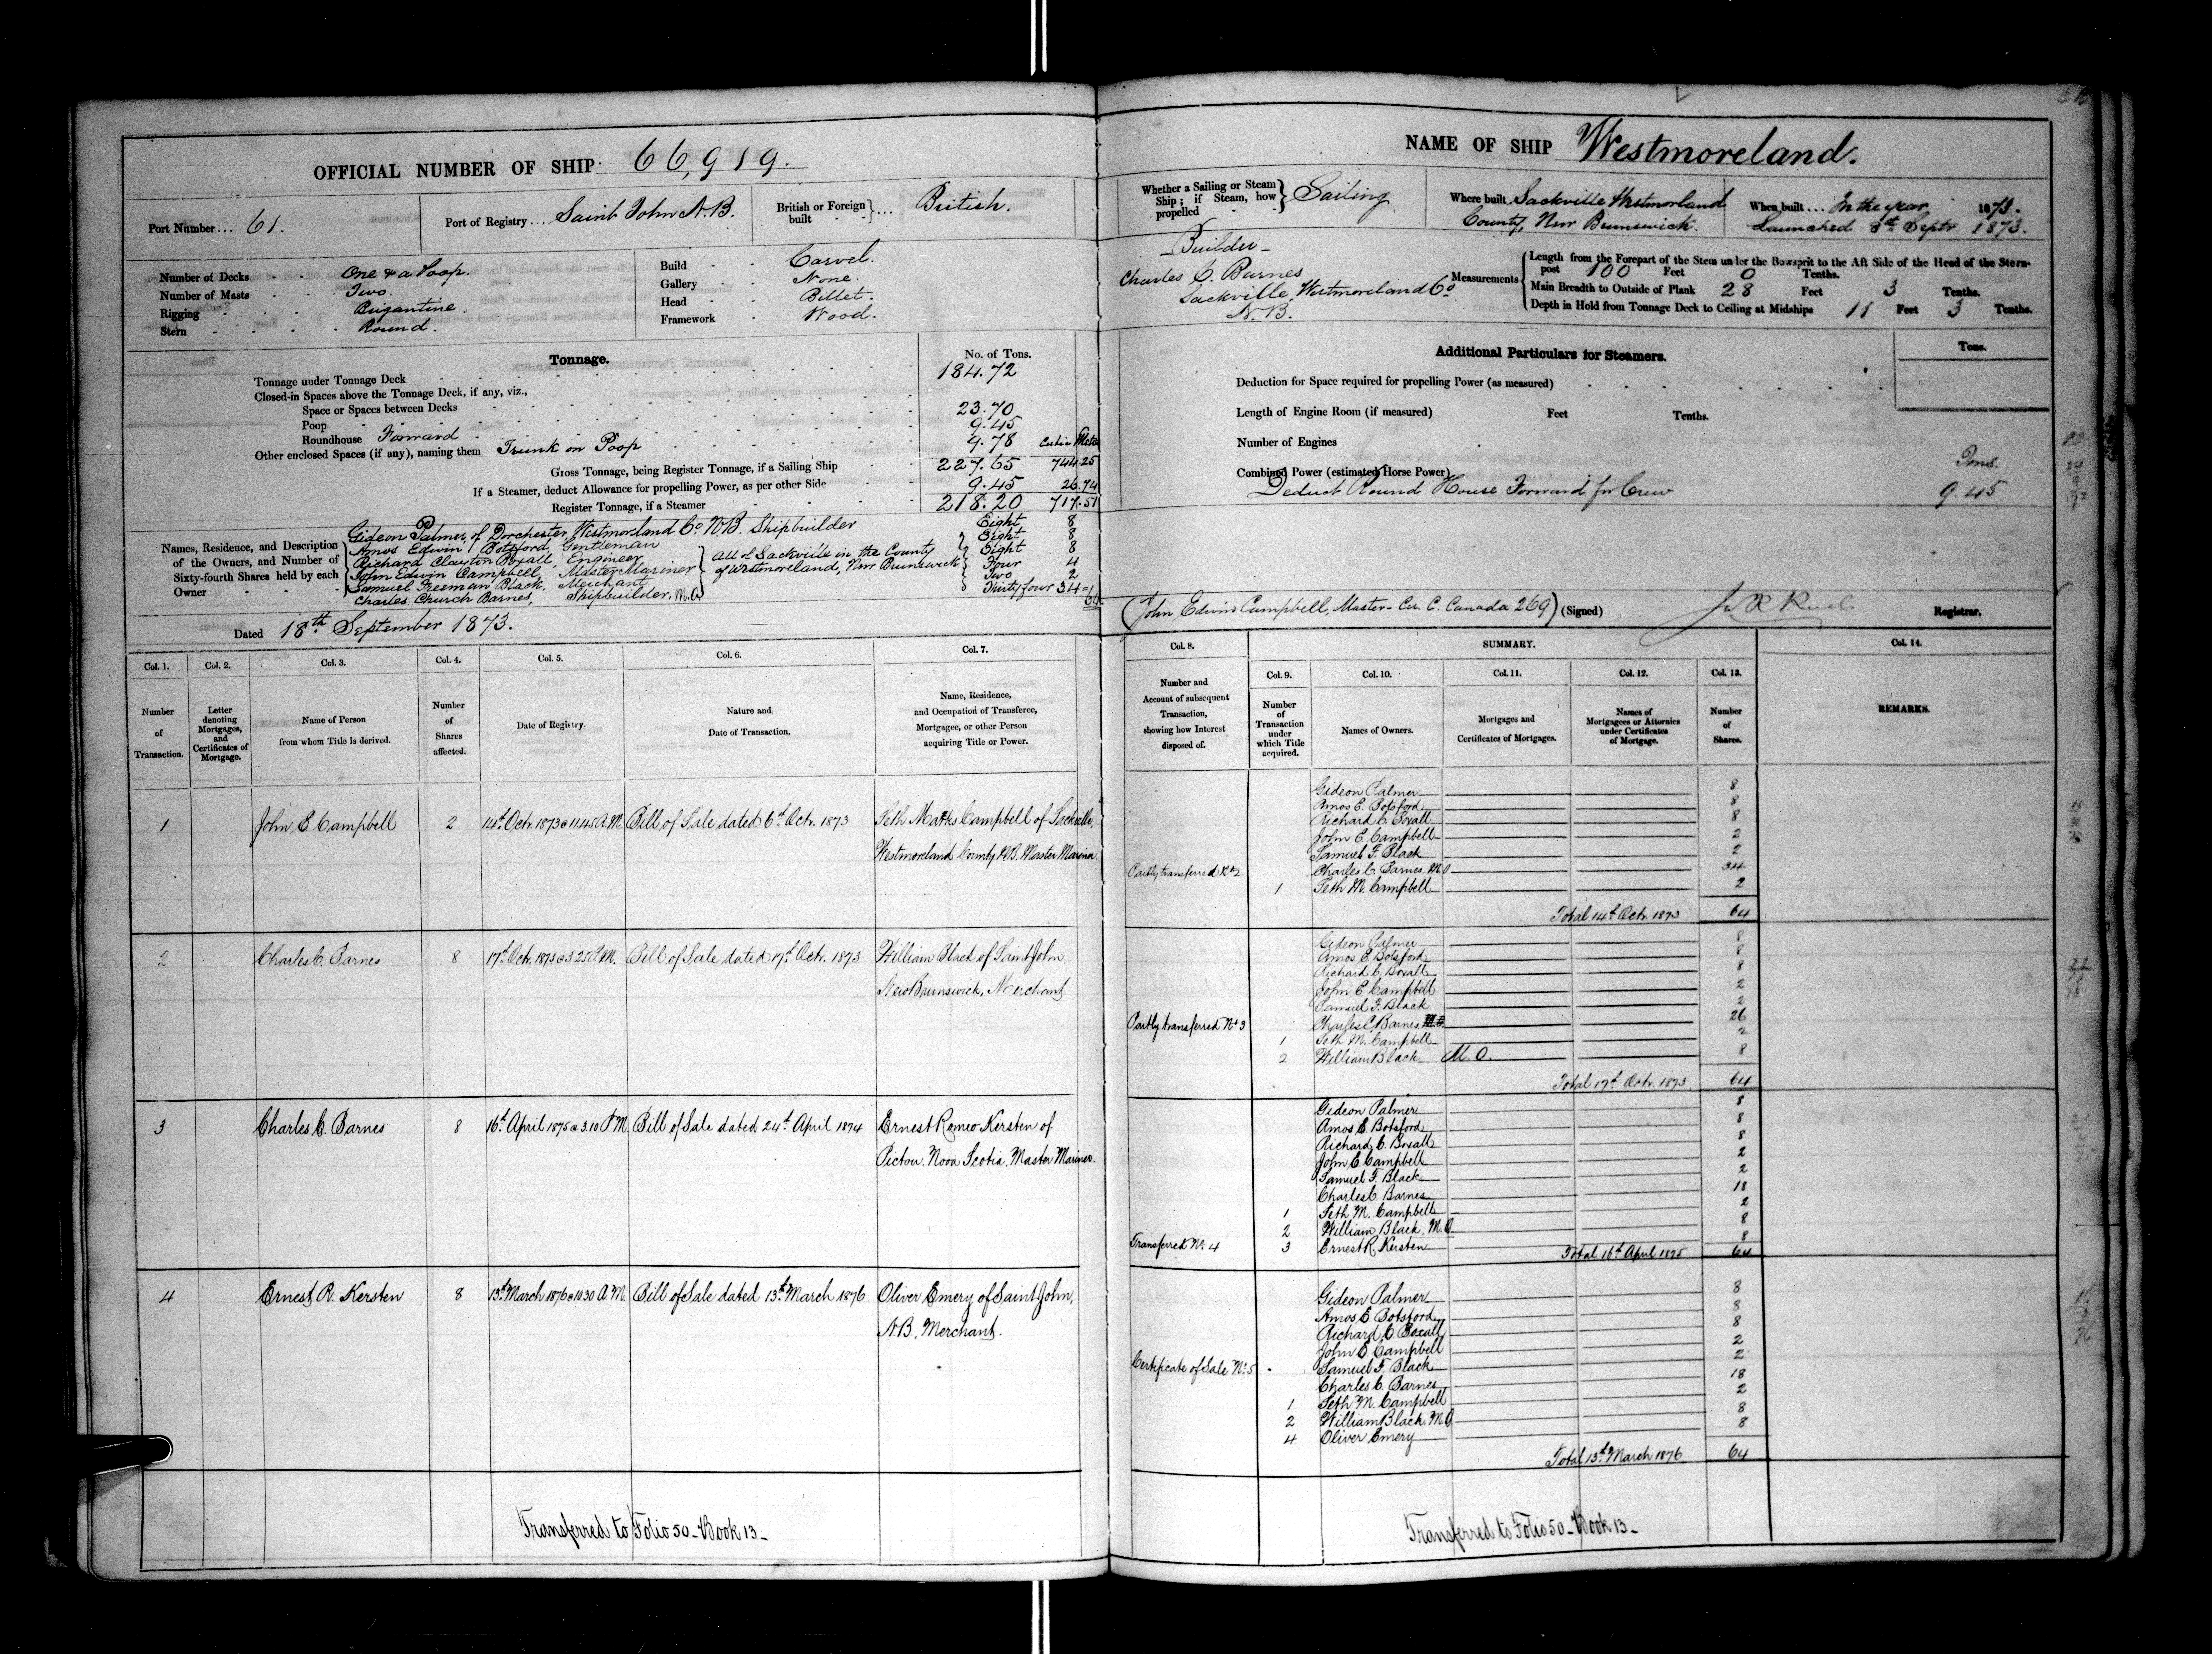 OFFICIAL NUMBER OF SHIP 66,919.
Port Number ... 61.
Port of Registry ... Saint John N.B.
British or Foreign built ... British.
Number of Decks One & a Poop.
Number of Masts Two.
Rigging Brigantine.
Stern Round.
Build Carvel.
Gallery None.
Head Billet.
Framework Wood.
Tonnage.
No. of Tons.
Tonnage under Tonnage Deck 184.72
Closed-in Spaces above the Tonnage Deck, if any, viz.,
Space or Spaces between Decks
Poop 23.70
Roundhouse Forward 9.45
Other enclosed Spaces (if any), naming them Trunk on Poop 9.78
Gross Tonnage, being Register Tonnage, if a Sailing Ship 227.65 744.25
If a Steamer, deduct Allowance for propelling Power, as per other Side 9.45 26.74
Register Tonnage, if a Steamer 218.20 717.51
Names, Residence, and Description of the Owners, and Number of Sixty-fourth Shares held by each Owner
Gideon Palmer, of Dorchester, Westmorland Co. N.B. Shipbuilder Eight 8
Amos Edwin Botsford, Gentleman Eight 8
Richard Clayton Boxall, Engineer Eight 8
John Edwin Campbell, Master Mariner Four 4
Samuel Freeman Black, Merchant Two 2
Charles Church Barnes, Shipbuilder, M.O. Thirty four 34 =
64
all of Sackville in the County
of Westmorland, New Brunswick
Dated 18th September 1873.
Col. 1. Col. 2. Col. 3. Col. 4. Col. 5. Col. 6. Col. 7.
Number of Transaction.
Letter denoting Mortgages, and Certificates of Mortgage.
Name of Person from whom Title is derived.
Number of Shares affected.
Date of Registry.
Nature and Date of Transaction.
Name, Residence, and Occupation of Transferee, Mortgagee, or other Person acquiring Title or Power.
1 John E Campbell 2 14th Octr. 1873 @ 11.45 A.M. Bill of Sale dated 6th Octr. 1873 Seth Campbell of Sackville,
Westmoreland County N.B. Master Mariner
2 Charles C. Barnes 8 17th Octr. 1873 @ 3.25 P.M. Bill of Sale dated 17th Octr. 1873 William Black of Saint John
New Brunswick, Merchant
3 Charles C. Barnes 8 16th April 1875 @ 3.10 P.M. Bill of Sale dated 24th April 1874 Ernest Romeo Kersten of
Pictou. Nova Scotia. Master Mariner.
4 Ernest R. Kersten 8 13th March 1876 @ 10.30 A.M. Bill of Sale dated 13th March 1876 Oliver Emery of Saint John,
N.B. Merchant.
Transferred to Folio 50 - Book 13 -
NAME OF SHIP Westmoreland.
Whether a Sailing or Steam Ship; if Steam, how propelled Sailing
Where built Sackville Westmorland
County, New Brunswick.
When built ... In the year 1873.
Launched 8th Septr 1873.
Builder -
Charles C. Barnes
Sackville, Westmoreland Co
N.B.
Measurements
Length from the Forepart of the Stem under the Bowsprit to the Aft Side of the Head of the Stern-
post 100 Feet 0 Tenths.
Main Breadth to Outside of Plank 28 Feet 3 Tenths.
Depth in Hold from Tonnage Deck to Ceiling at Midships 11 Feet 3 Tenths.
Additional Particulars for Steamers.
Tons.
Deduction for Space required for propelling Power (as measured)
Length of Engine Room (if measured) Feet Tenths.
Number of Engines
Combined Power (estimated Horse Power)
Tons.
Deduct Round House Forward for Crew 9.45
(John Edwin Campbell, Master - Cer. C. Canada 269) (Signed)
Registrar.
Col. 8. SUMMARY. Col. 14.
Col. 9. Col. 10. Col. 11. Col. 12. Col. 13.
Number and Account of subsequent Transaction, showing how Interest disposed of.
Number of Transaction under which Title acquired.
Names of Owners.
Mortgages and Certificates of Mortgages.
Names of Mortgagees or Attornies under Certificates of Mortgage.
Number of Shares.
REMARKS.
Gideon Palmer 8
Amos E. Botsford 8
Richard C Boxall 8
John E Campbell 2
Samuel F. Black 2
Partly transferred No 2 Charles C Barnes. M.O 34
1 Seth M. Campbell 2
Total 14th Octr. 1873 64
Gideon Palmer 8
Amos E Botsford 8
Richard C Boxall 8
John E Campbell 2
Samuel F. Black 2
Partly transferred No 3 Charles C Barnes, M.O. 26
1 Seth M. Campbell 2
2 William Black M.O. 8
Total 17th Octr. 1873 64
Gideon Palmer 8
Amos E Botsford 8
Richard C. Boxall 8
John E Campbell 2
Samuel F. Black 2
Charles C Barnes 18
1 Seth M. Campbell 2
2 William Black, M.O 8
Transferred No. 4 3 Ernest R Kersten 8
Total 16th April 1875 64
Gideon Palmer 8
Amos E Botsford 8
Richard C Boxall 8
John E. Campbell 2
Certificate of Sale No. 5 Samuel F. Black 2
Charles C. Barnes 18
1 Seth M. Campbell 2
2 William Black M.O 8
4 Oliver Emery 8
Total 13th March 1876 64
Transferred to Folio 50 - Book 13 -